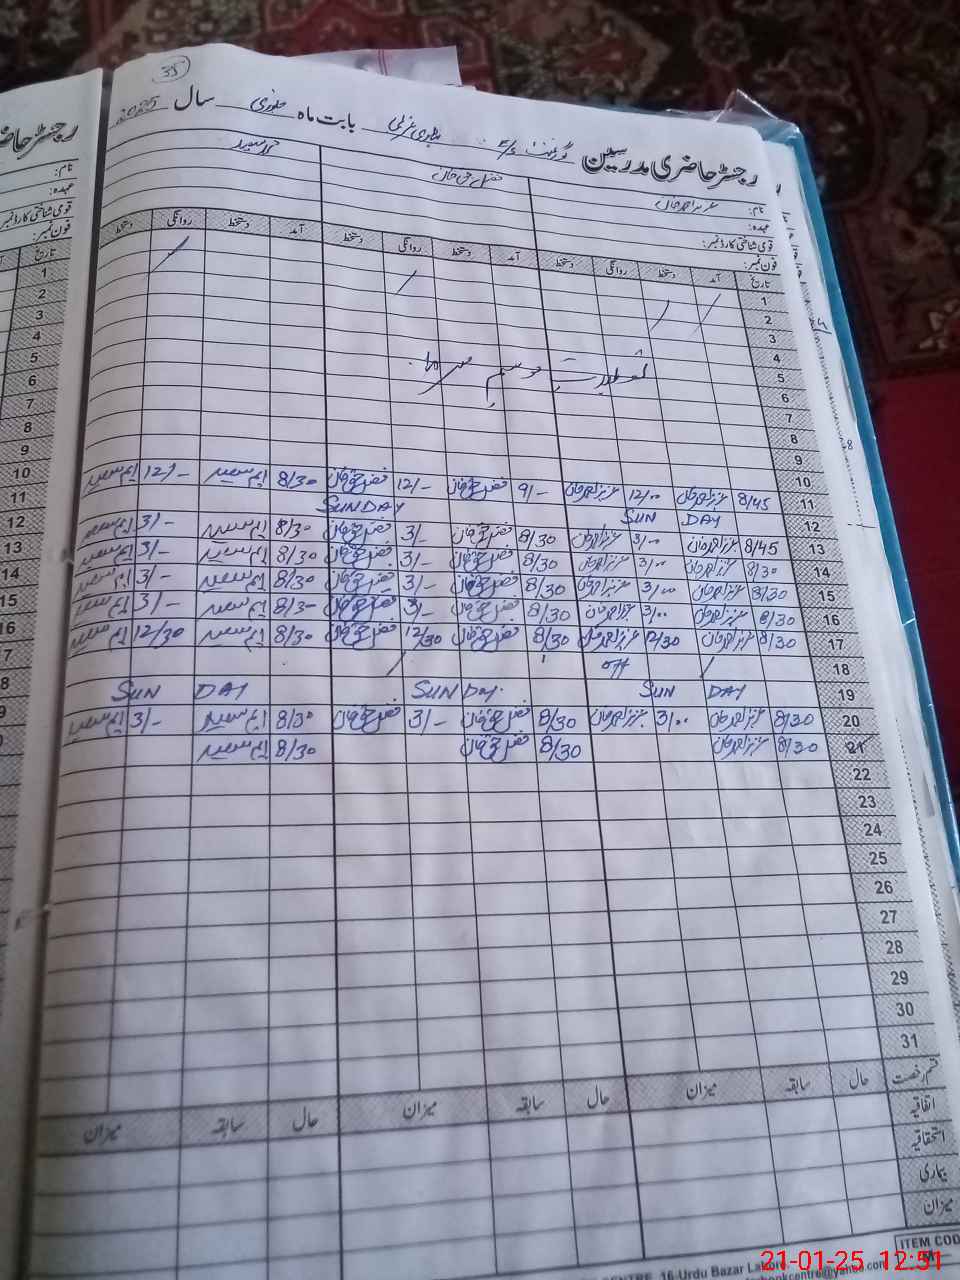 35
رجسٹر حاضری مدرسین گورنمنٹ بابت ماہ جنوری سال 2025
رجسٹر حاضری
نام: عزیز احمد خان فضل حق خان محمد سعید
عہدہ:
قومی شناختی کارڈ نمبر:
فون نمبر:
تاریخ آمد دستخط روانگی دستخط آمد دستخط روانگی دستخط آمد دستخط روانگی دستخط
1
2
3
4
تعطیلات موسم سرما
5
6
7
8
9
10
11 8/45 عزیز احمد خان 12/00 عزیز احمد خان 9/- فضل حق خان 12/- فضل حق خان 8/30 ایم سعید 12/- ایم سعید
12 SUN DAY SUNDAY
13 8/45 عزیز احمد خان 3/00 عزیز احمد خان 8/30 فضل حق خان 3/- فضل حق خان 8/30 ایم سعید 3/- ایم سعید
14 8/30 عزیز احمد خان 3/00 عزیز احمد خان 8/30 فضل حق خان 3/- فضل حق خان 8/30 ایم سعید 3/- ایم سعید
15 8/30 عزیز احمد خان 3/00 عزیز احمد خان 8/30 فضل حق خان 3/- فضل حق خان 8/30 ایم سعید 3/- ایم سعید
16 8/30 عزیز احمد خان 3/00 عزیز احمد خان 8/30 فضل حق خان 3/- فضل حق خان 8/30 ایم سعید 3/- ایم سعید
17 8/30 عزیز احمد خان 12/30 عزیز احمد خان 8/30 فضل حق خان 12/30 فضل حق خان 8/30 ایم سعید 12/30 ایم سعید
18 off
19 SUN DAY SUN DAY SUN DAY
20 8/30 عزیز احمد خان 3/00 عزیز احمد خان 8/30 فضل حق خان 3/- فضل حق خان 8/30 ایم سعید 3/- ایم سعید
21 8/30 عزیز احمد خان 8/30 فضل حق خان 8/30 ایم سعید
22
23
24
25
26
27
28
29
30
31
قسم رخصت حال سابقہ میزان حال سابقہ میزان حال سابقہ میزان
اتفاقیہ
استحقاقیہ
بیماری
میزان
ITEM COD
16-Urdu Bazar Lahore.
21-01-25 12:51